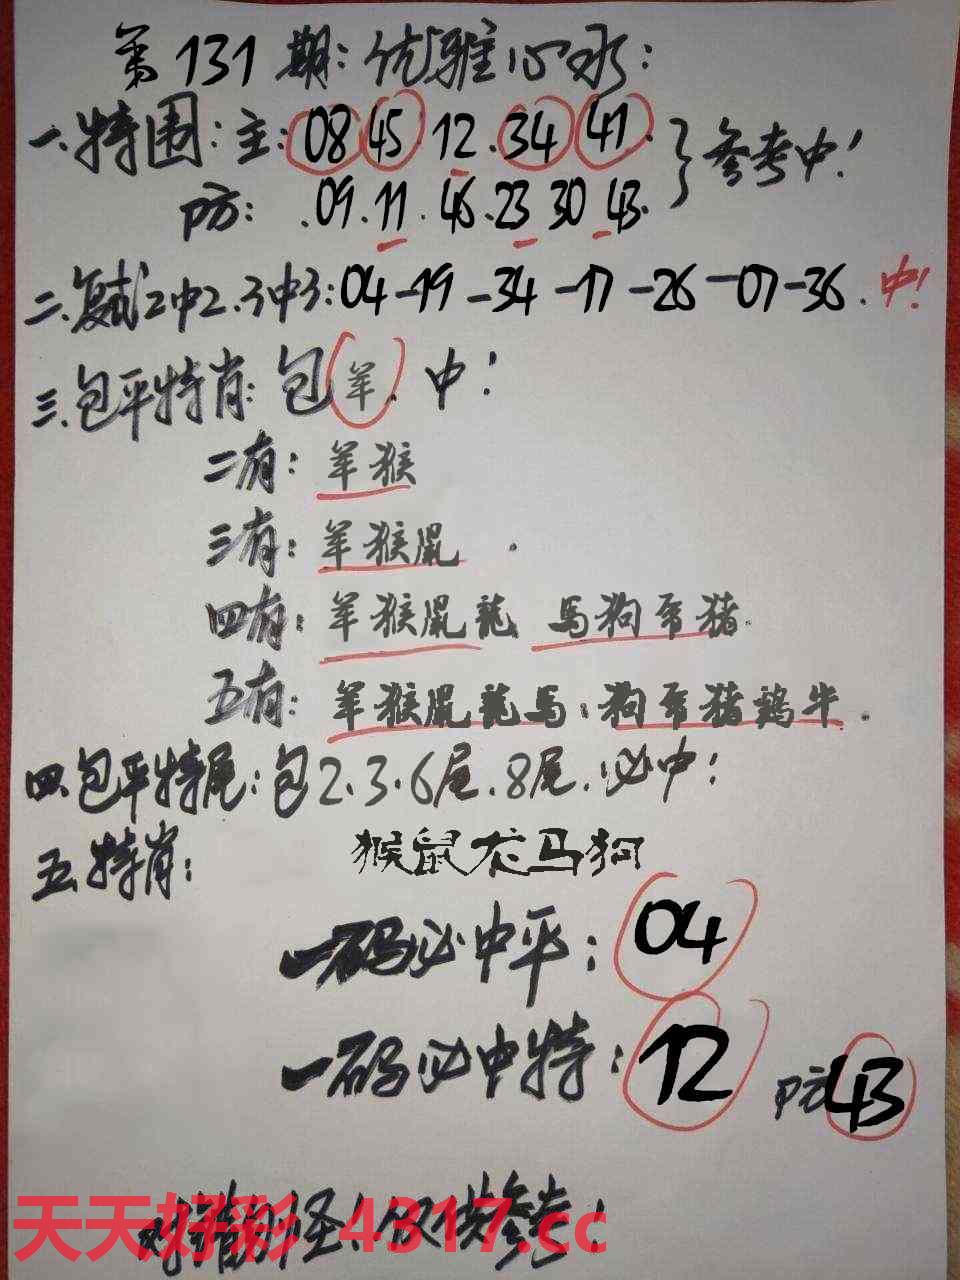 第131期:优雅心水:
一.特围:主:08 45.12.34 41.}参考中!
防:.09.11.46.23 30 43.
二.复试2中2.3中3:04-19-34-17-26-07-36.中!
三.包平特肖:包羊.中!
二有:羊猴
三有:羊猴鼠.
四有:羊猴鼠龍 馬狗兔猪.
五有:羊猴鼠龍馬:狗兔猪鷄牛.
四.包平特尾:包2.3.6尾.8尾.必中!
五.特肖:猴鼠龙马狗
一码必中平:04
一码必中特:12 防43
对错勿怪!仅供参考!
天天好彩 4317.cc